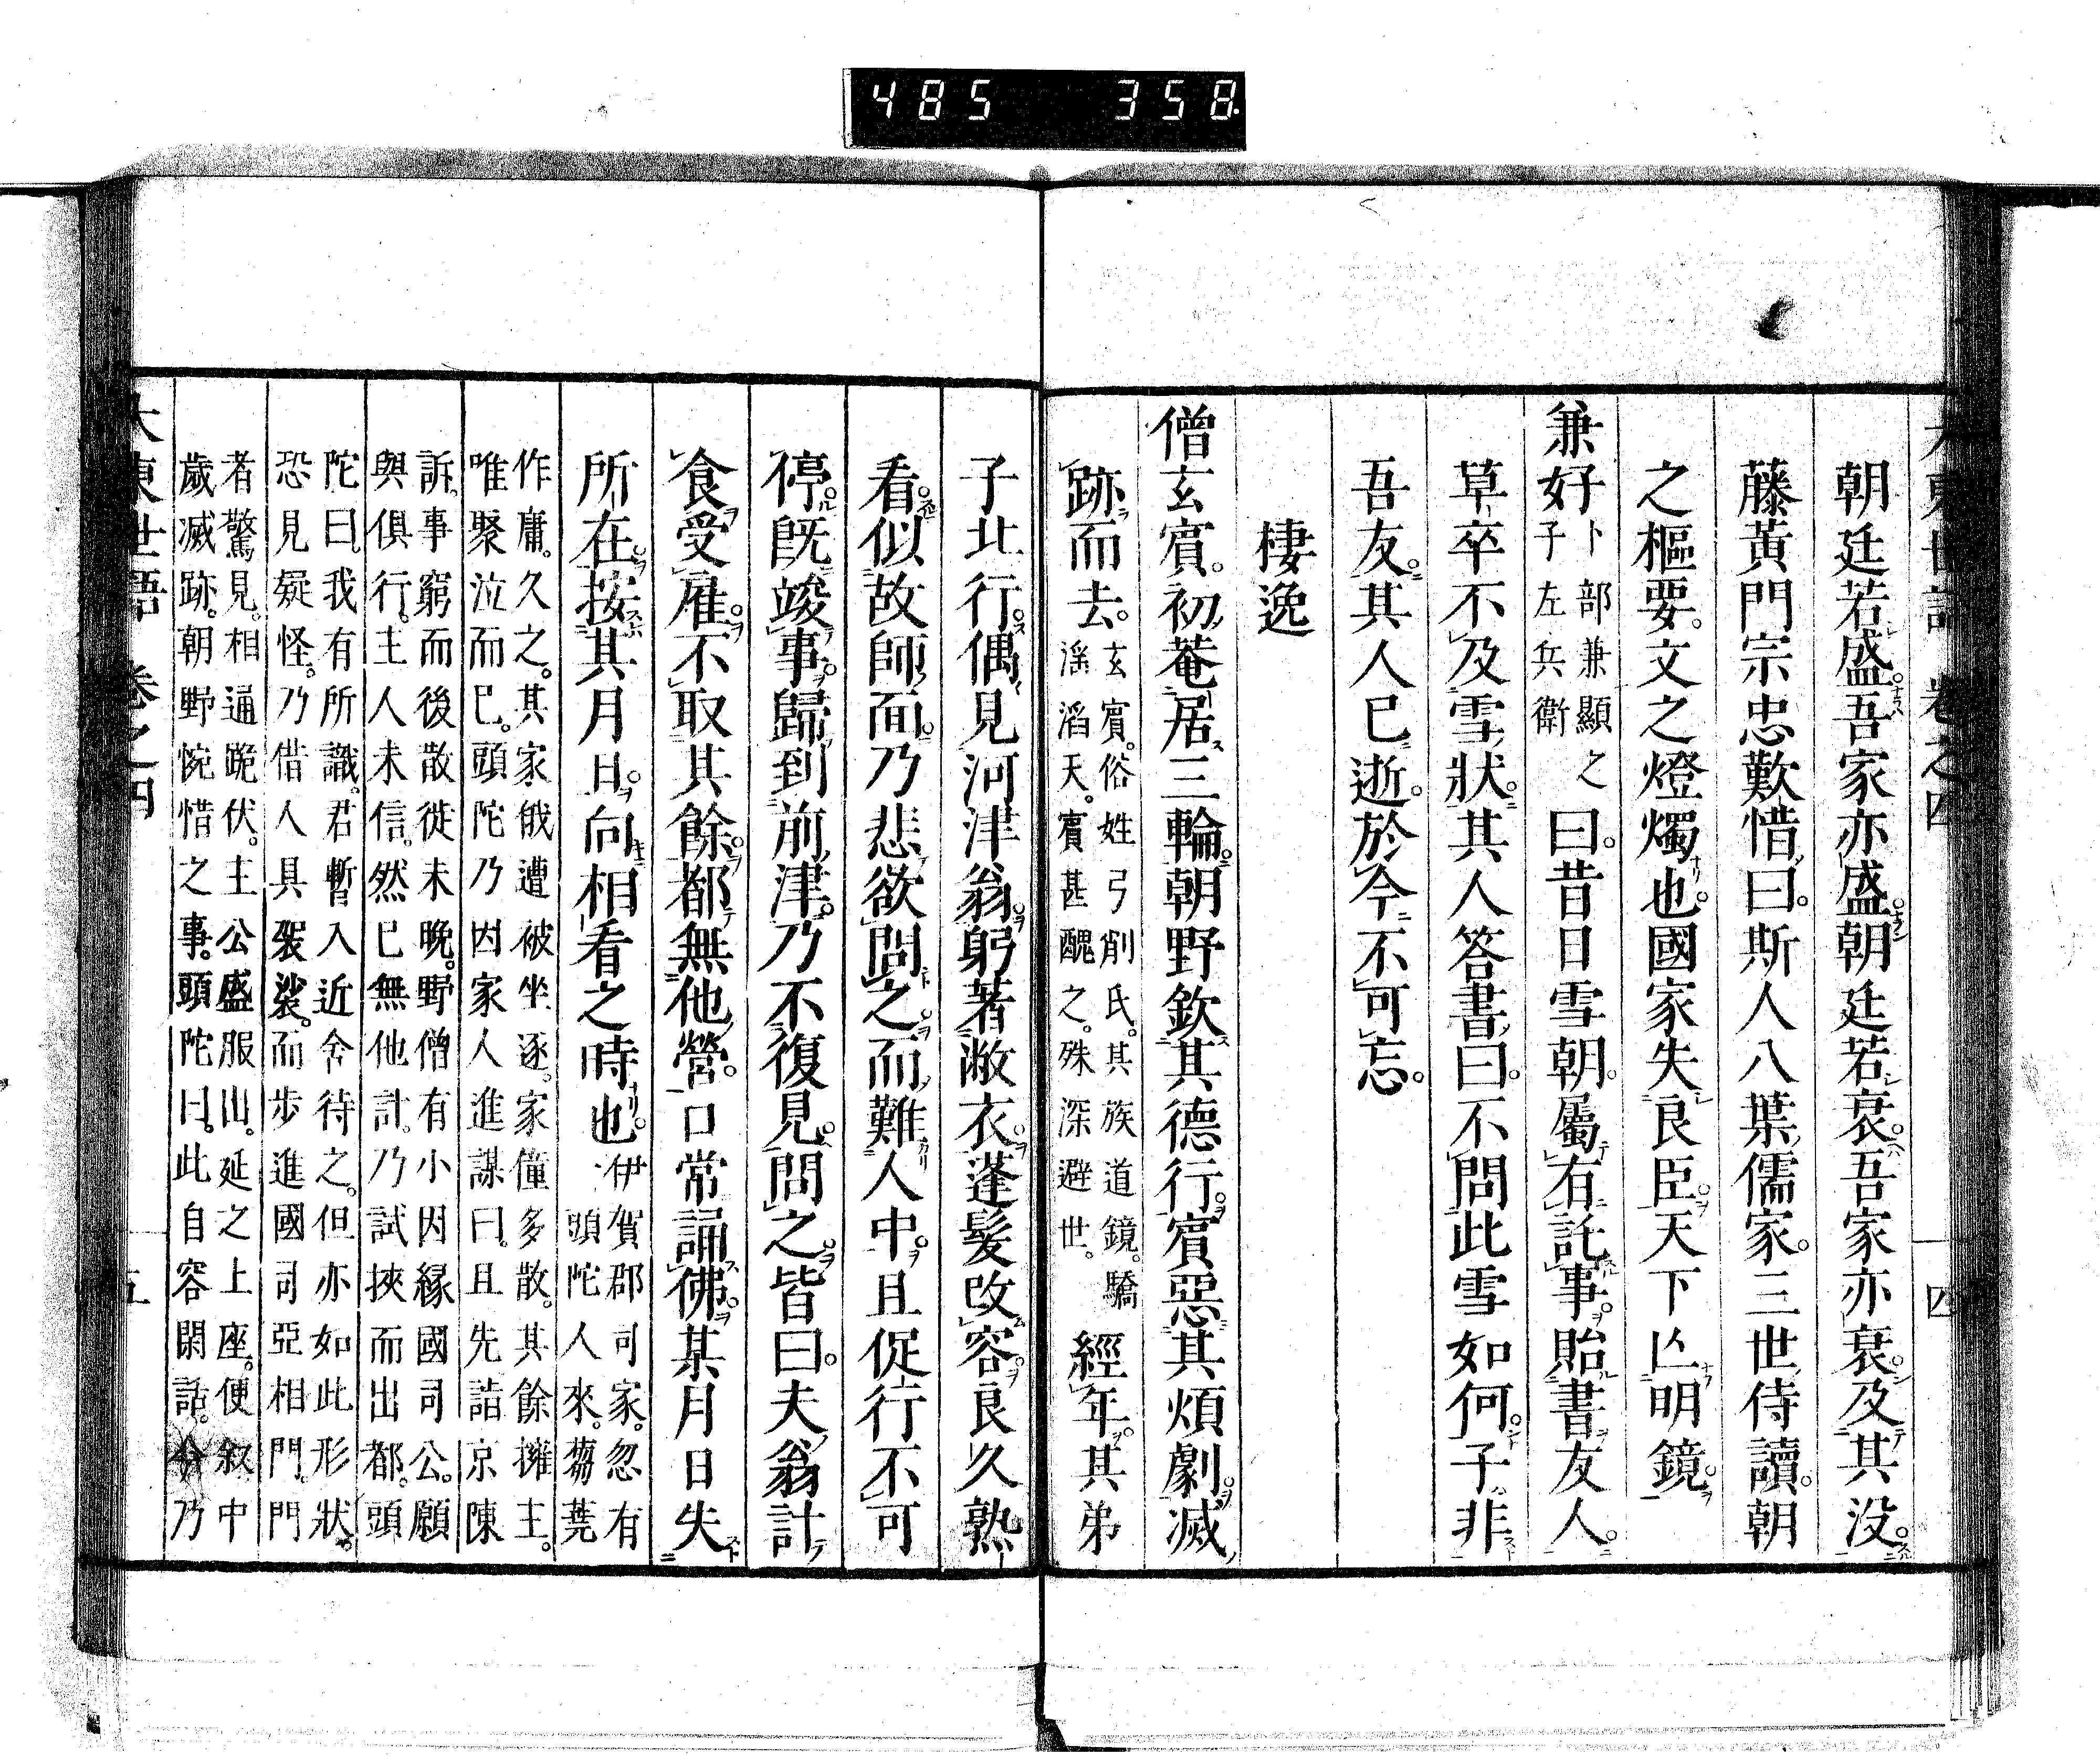 485 358
大東世語 卷之四 四
朝廷若盛吾家亦盛朝廷若衰吾家亦衰及其沒
藤黃門宗忠歎惜曰斯人八葉儒家三世侍讀朝
之樞要文之燈燭也國家失良臣天下亾明鏡
兼好卜部兼顯之子左兵衛曰昔日雪朝屬有託事貽書友人
草卒不及雪狀其人答書曰不問此雪如何子非
吾友其人已逝於今不可忘
棲逸
僧玄賓初菴居三輪朝野欽其德行賓惡其煩劇滅
跡而去玄賓俗姓弓削氏其族道鏡驕滛滔天賓甚醜之殊深避世經年其弟
子北行偶見河津翁躬著敝衣蓬髮改容良久熟
看似故師面乃悲欲問之而難人中且促行不可
停旣竣事歸到前津乃不復見問之皆曰夫翁計
食受雇不取其餘都無他營口常誦佛某月日失
所在按其月日向相看之時也伊賀郡司家忽有頭陀人來蒭蕘
作庸久之其家俄遭被坐逐家僮多散其餘擁主
唯聚泣而已頭陀乃因家人進謀曰且先詣京陳
訴事窮而後散徙未晚野僧有小因緣國司公願
與俱行主人未信然已無他計乃試挾而出都頭
陀曰我有所識君暫入近舍待之但亦如此形狀
恐見疑怪乃借人具袈裟而步進國司亞相門門
者驚見相通跪伏主公盛服出延之上座便叙中
歲滅跡朝野惋惜之事頭陀曰此自容閑話今乃
大東世語 卷之四 五